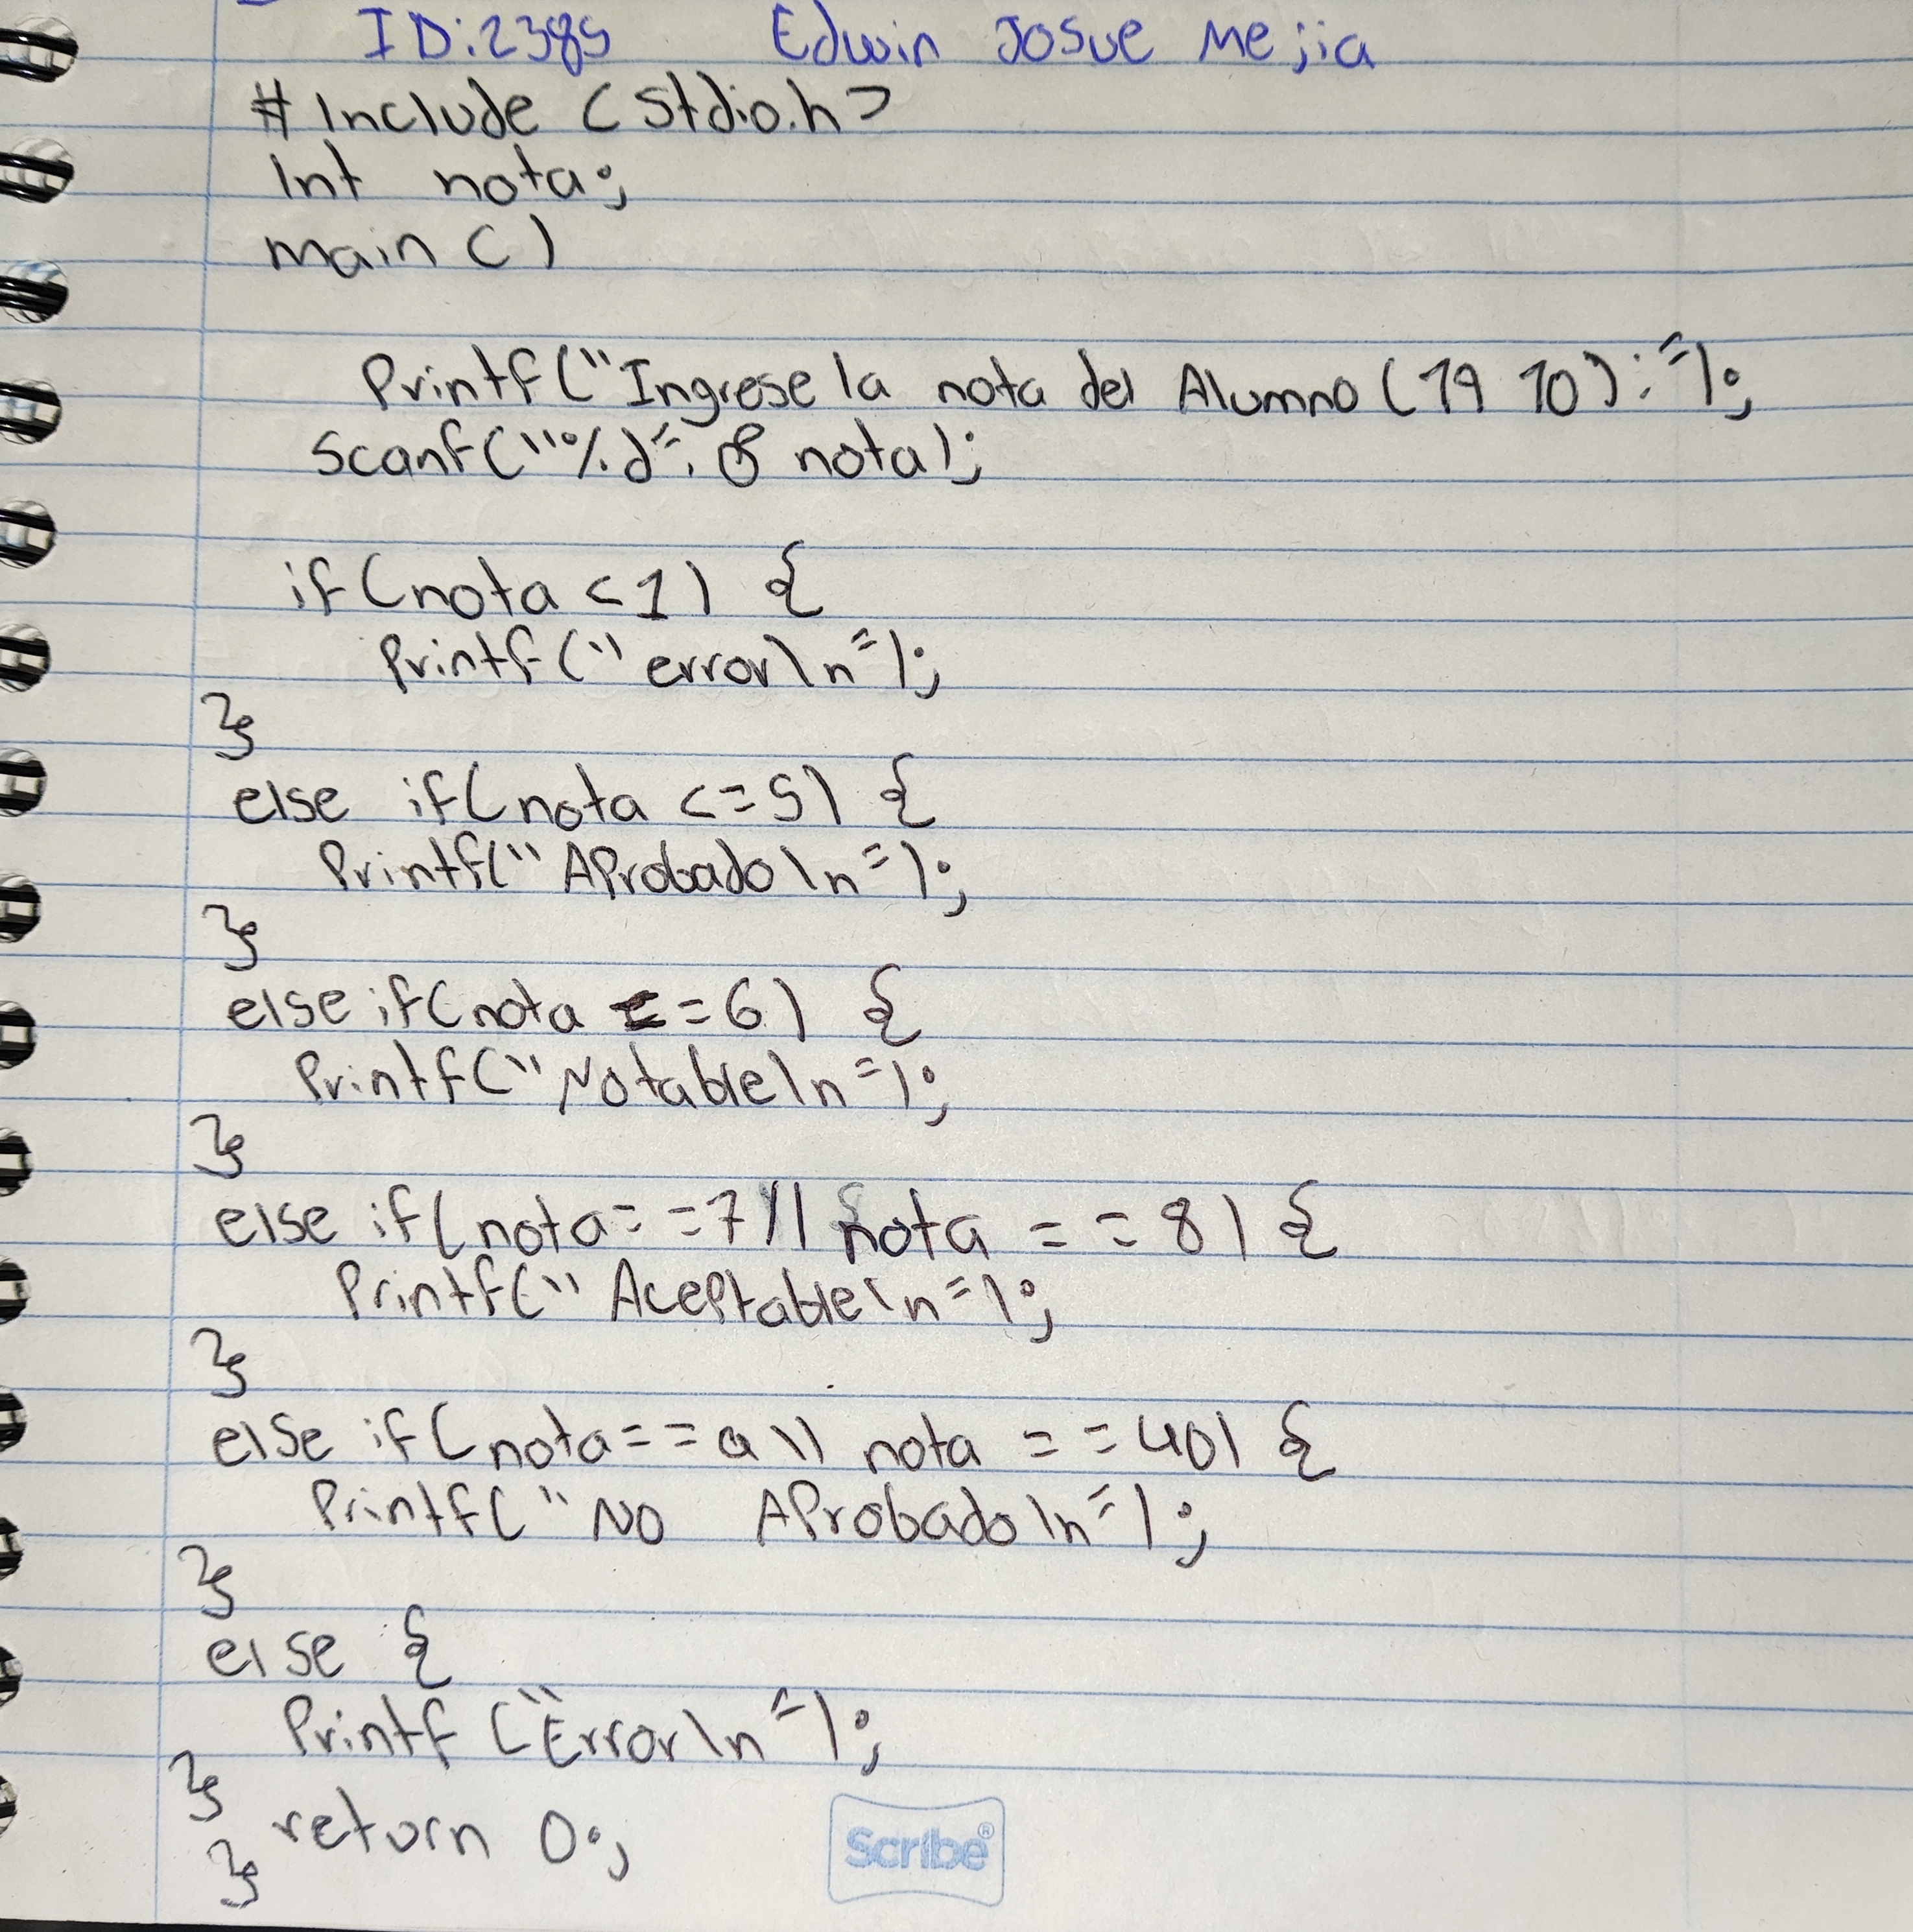 ID:2385 Edwin Josue Mejia
# Include <stdio.h>
Int nota;
main ()
Printf("Ingrese la nota del Alumno (19 10): ");
Scanf("%d", & nota);
if(nota <1) {
Printf("error\n");
}
else if(nota <=5) {
Printf("AProbado\n");
}
else if(nota ==6) {
Printf("Notable\n");
}
else if(nota==7|| nota ==8) {
Printf("Aceptable\n");
}
else if(nota==a\\ nota ==40) {
Printf("NO AProbado\n");
}
else {
Printf("Error\n");
}
return 0;
}
Scribe®